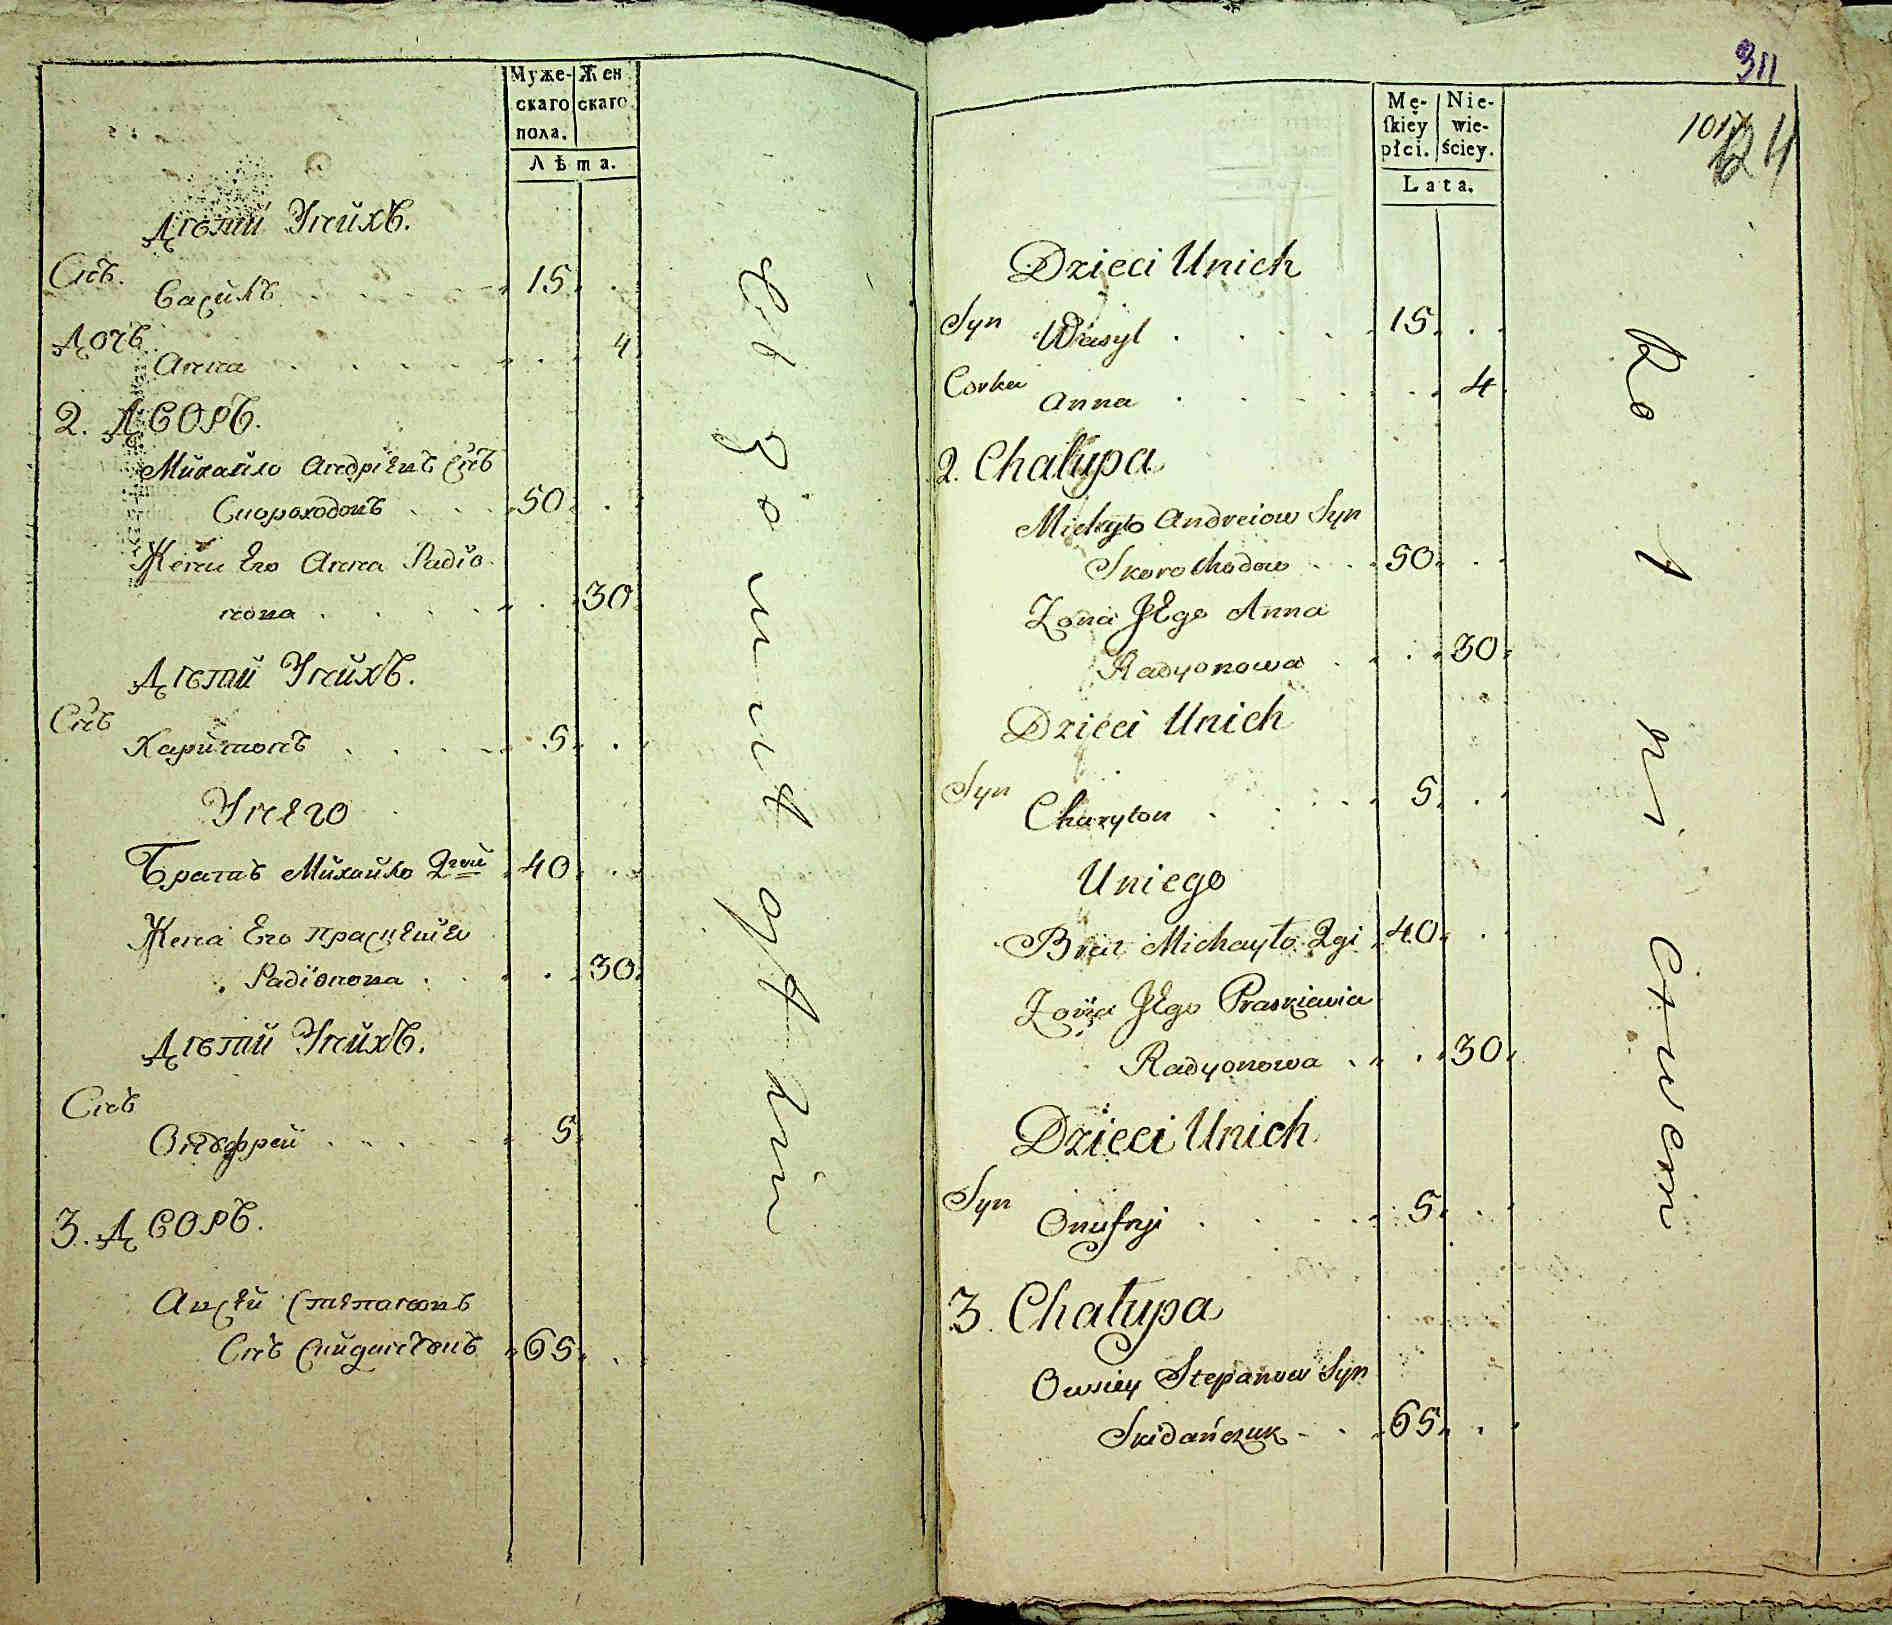 Муже- Жен
скаго скаго
пола.
Лѣта.
Дѣтій Унихъ.
Снъ.
Василь 15
Дочь
Анна 4
2. Дворъ.
Михайло Андріевъ Снъ
Скороходовъ 50
Жена Его Анна Радіо
нова 30
Дѣтий Унихъ.
Снъ
Харитонъ 5
Унего
Братъ Михайло 2гий 40
Жена Его Прасцевия
Радіонова 30
Дѣтий Унихъ.
Снъ
Онуфрей 5
3. Дворъ.
Авсей Степановъ
Снъ 65
311
1017
24
Mę- Nie-
ſkiey wie-
płci. ściey.
Lata.
Dzieci Unich
Syn Wasyl 15
Corka Anna 4
2. Chałupa
Michayło Andreiow Syn
Skorochodow 50
Zona JEgo Anna
Radyonowa 30
Dzieci Unich
Syn
Charyton 5
Uniego
Brat Michayło 2gi 40
Zona JEgo Praskiewia
Radyonowa 30
Dzieci Unich
Syn Onufryi 5
3 Chałupa
Owsiey Stepanow Syn
Skidańczuk 65